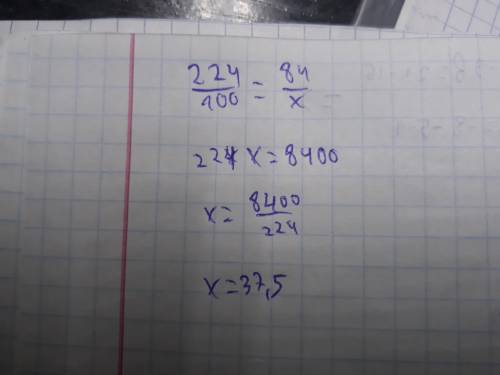 224/100 = 84/x
224 x = 8400
x = 8400/224
x = 37,5